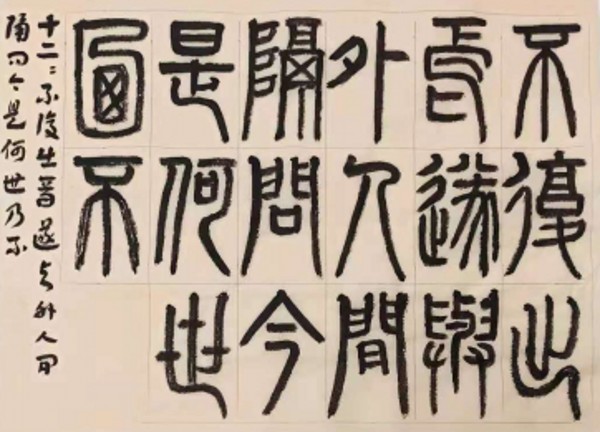 不復出
焉遂與
外人間
隔問今
是何世
不
十二：不復出焉遂与外人间
隔问今是何世乃不